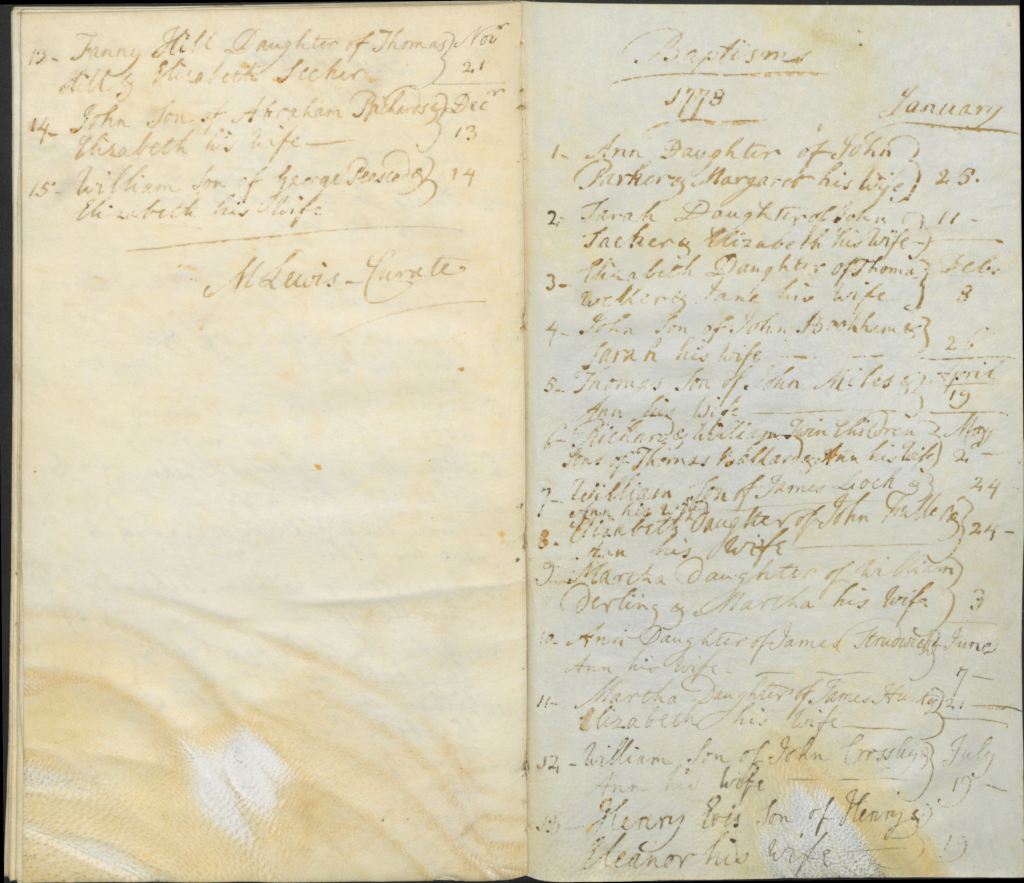 13- Fanny Hill Daughter of Thomas } Novr
Hill & Elizabeth 21
14- John Son of Abraham Richards & } Decr
Elizabeth his Wife — 13
15- William Son of George & } 14
Elizabeth his Wife
M Lewis - Curate
Baptisms
1778 January
1- Ann Daughter of John }
Parker & Margaret his Wife } 25.
2- Sarah Daughter of John } 11 —
Tacker & Elizabeth his Wife - }
3- Elizabeth Daughter of Thomas } Feb:
Welker & Jane his Wife 8
4- John Son of John & }
Sarah his Wife — — — 26
5- Thomas Son of John Miles & } April
Ann his Wife — 19
6- Richard & William Twin Children } May
Sons of Thomas Ballard & Ann his Wife } 2 —
7- William Son of James Lock & } 24
Ann his Wife
8- Elizabeth Daughter of John & } 24 -
Ann his Wife —
9- Martha Daughter of William }
Derling & Martha his Wife } 3
10- Ann Daughter of James } June
Ann his Wife - 7 —
11- Martha Daughter of James & } 21 —
Elizabeth his Wife —
12- William Son of John Crossby & } July
Ann his Wife 19 —
13- Henry Son of Henry & }
Eleanor his Wife — 19